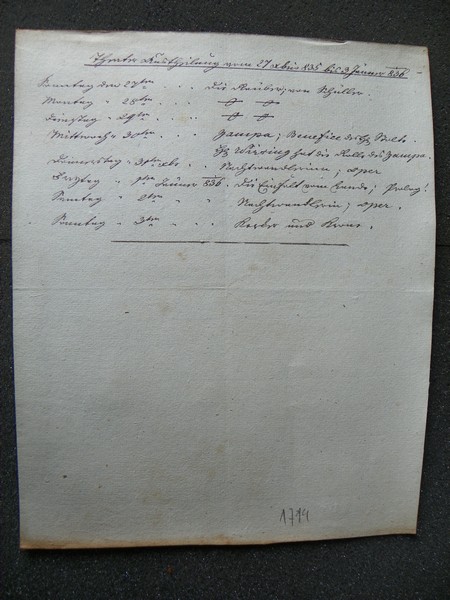 Theater Austheilung vom 27 xbris 835 bis 3 Jänner 836
Sonntag den 27ten . . Die Räuber, von Schiller.
Montag " 28ten . .
Dienstag " 29ten . .
Mittwoch " 30ten . . Zampa; Benefice des H.
H. hat die Rolle des Zampa.
Donnerstag " 31ten . . Nachtwandlerinn; Oper
Freytag " 1ten Jänner 836. Die Einfalt vom Lande; Prolog!
Samstag " 2ten " " Nachtwandlerin; Oper.
Sonntag " 3ten " " und Krone.
1714